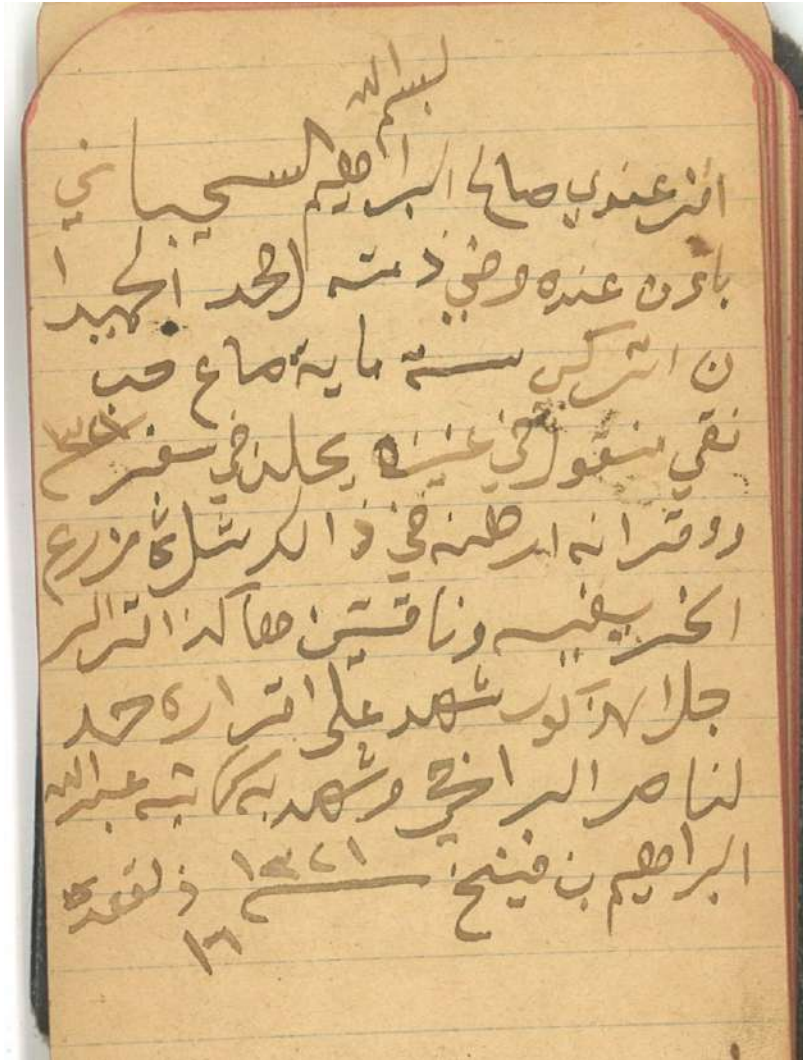 بسم الله
اقر عندي صالح البراهيم السحيباني
بان عنده وفي ذمته لحمد الحميدا
ن التركي ستة ماية صاع حب
نقي منقول في عنيزه يحلن في سفر
واقر انه ارهنه في ذالك مزرع
الخريفيسه وناقتين هاكذا اقر الر
جل المذكور شهد على اقراره حمد
لناصر وشهد به كاتبه عبدالله
البراهيم بن ١٣٢١ ذلقعده
١٦